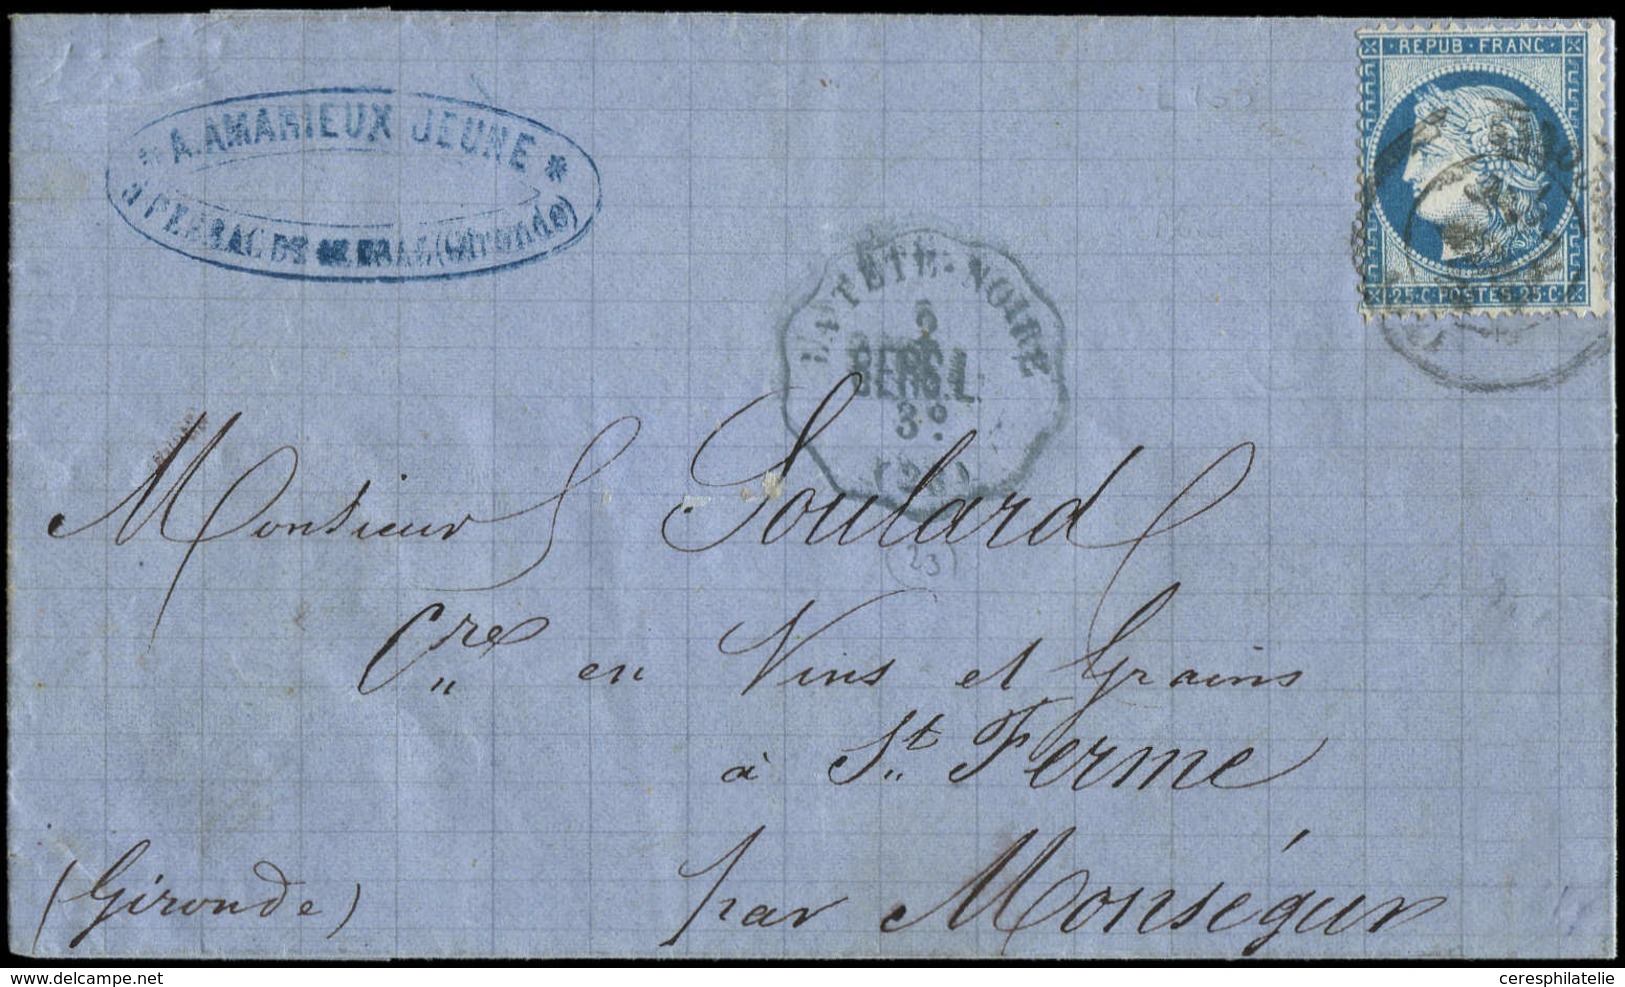 * A. AMARIEUX JEUNE *
(Gironde)
REPUB · FRANC ·
25 · C · POSTES · 25 · C ·
LA TÊTE-NOIRE
BERG. L.
3º
(23)
Monsieur Goulard
Cre en Vins et Grains
à St. Ferme
par Monségur
(Gironde)
www.delcampe.net
ceresphilatelie